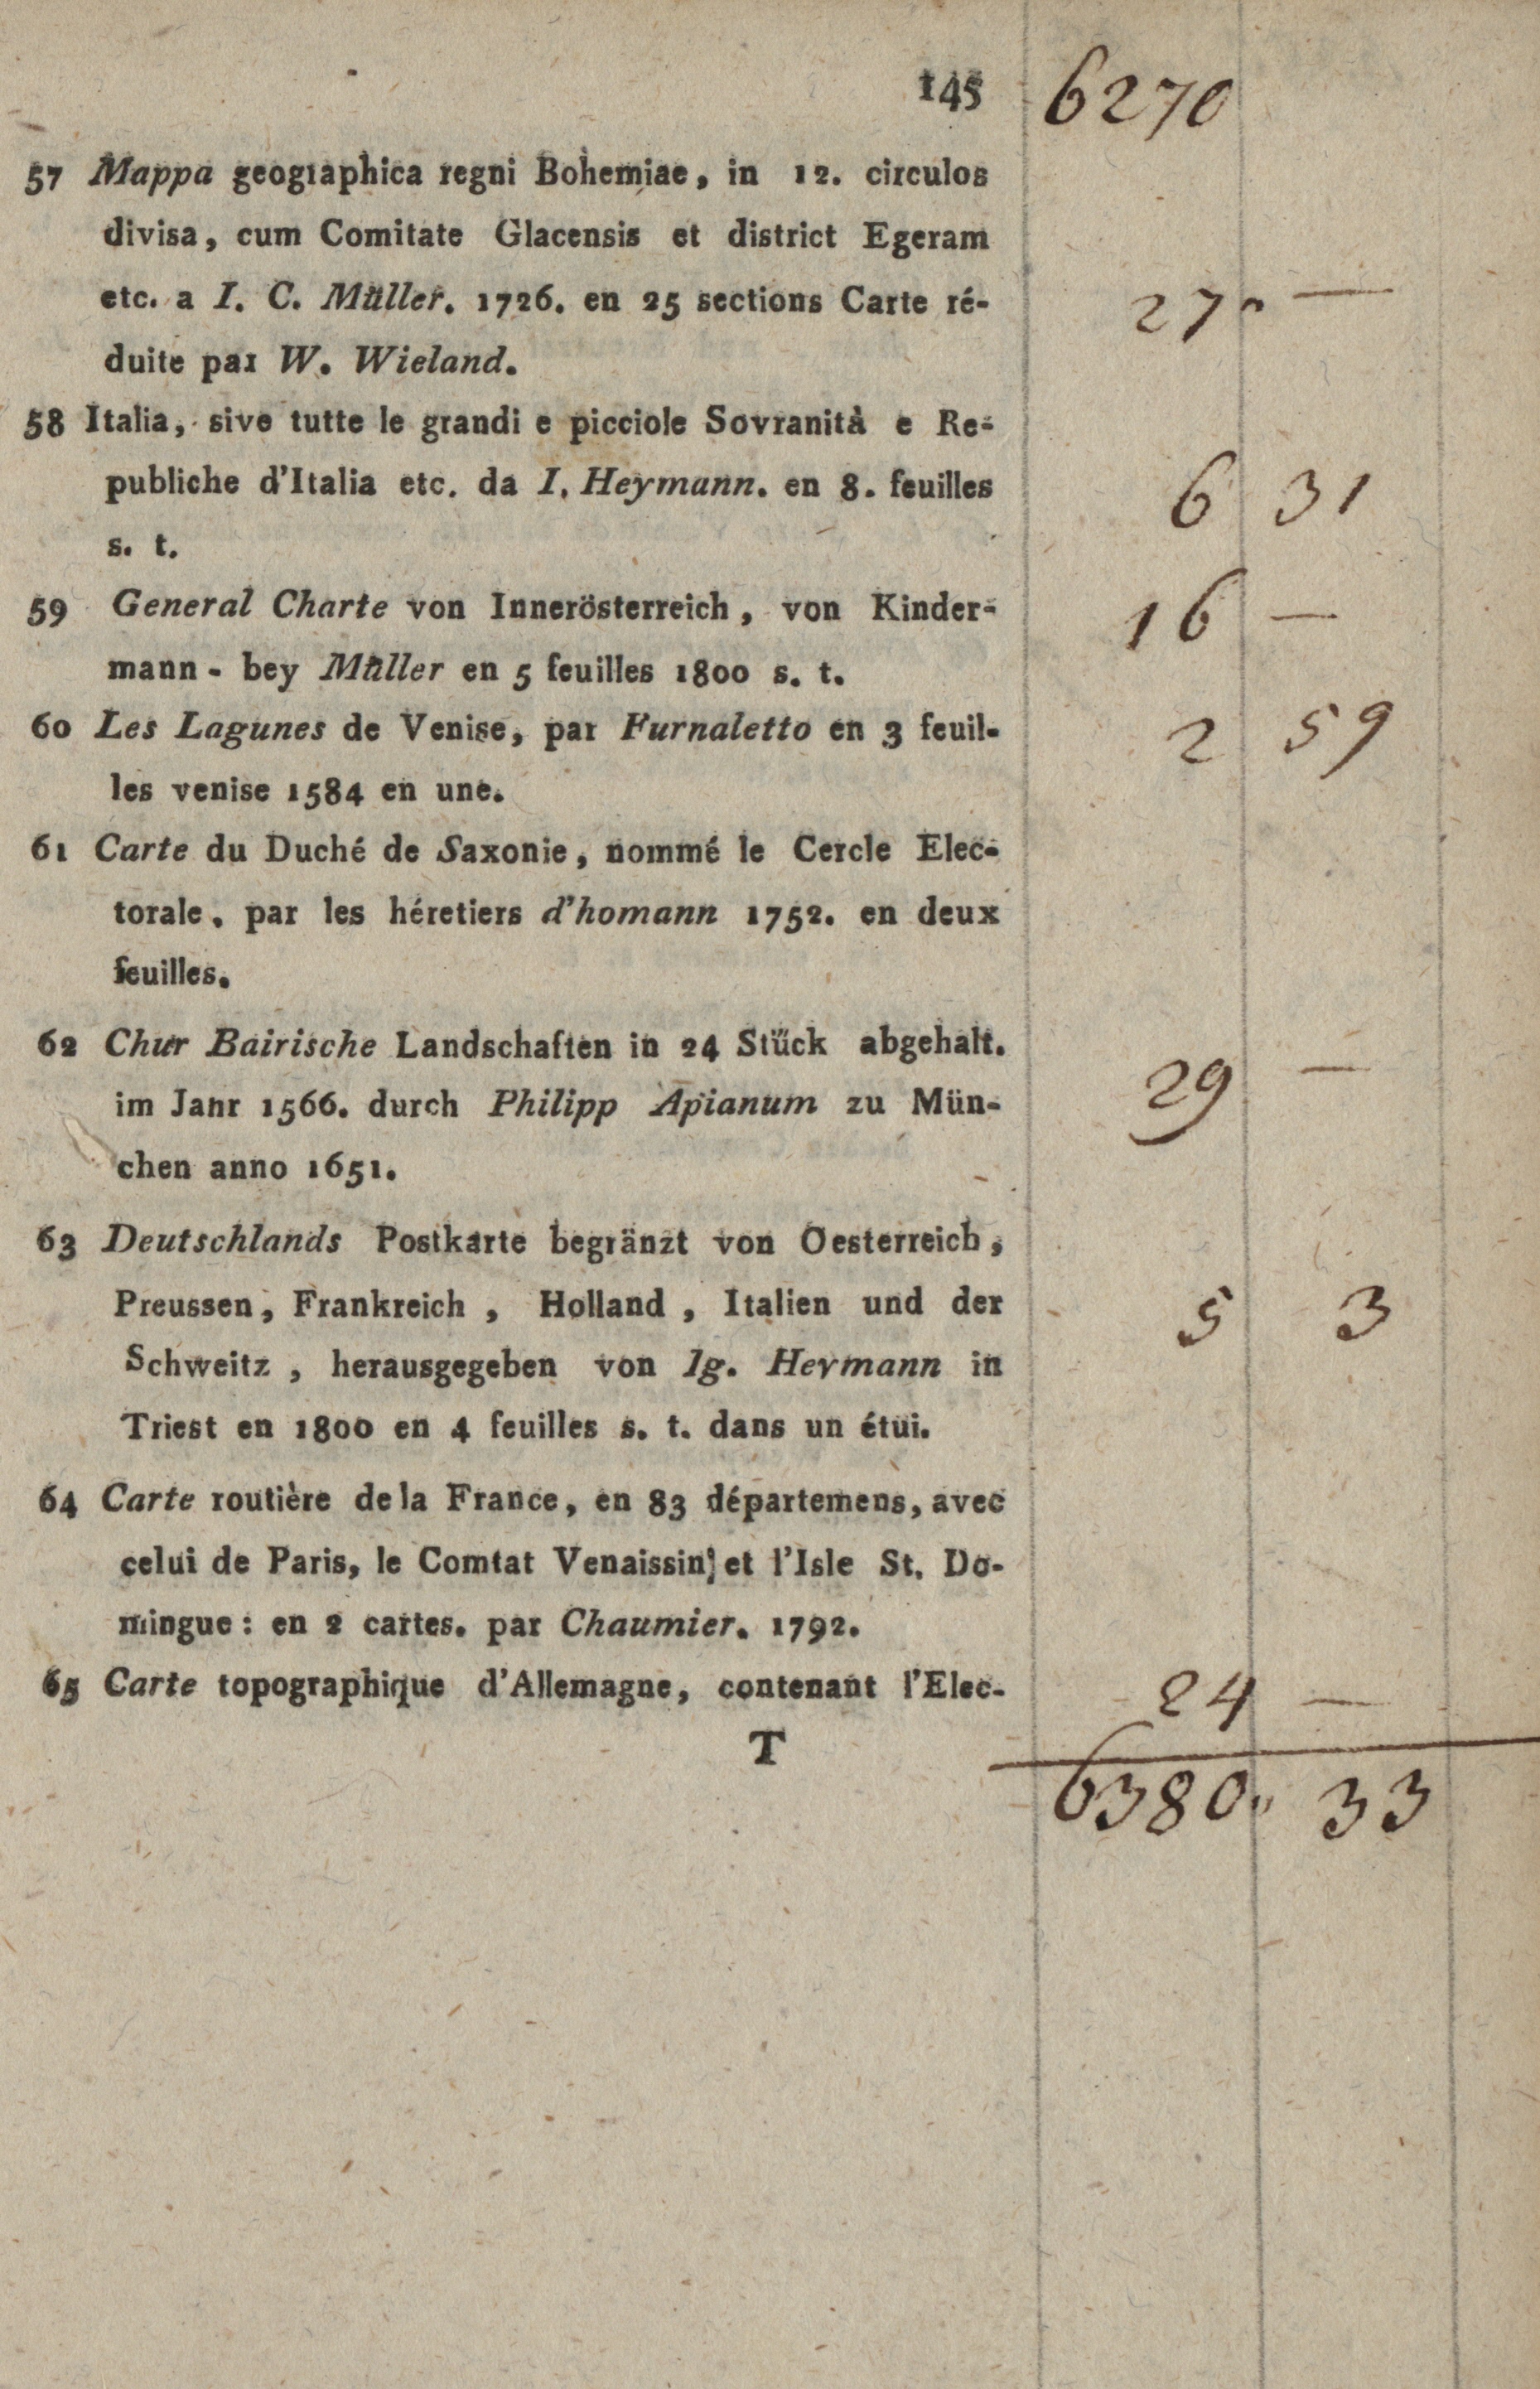 145 6270
57 Mappa geographica regni Bohemiae, in 12. circulos
divisa, cum Comitate Glacensis et district Egeram
etc. a I. C. Müller. 1726. en 25 sections Carte ré- 27 —
duite par W. Wieland.
58 Italia, sive tutte le grandi e picciole Sovranità e Re-
publiche d'Italia etc. da I. Heymann. en 8. feuilles 6 31
s. t.
59 General Charte von Innerösterreich, von Kinder- 16 —
mann - bey Müller en 5 feuilles 1800 s. t.
60 Les Lagunes de Venise, par Furnaletto en 3 feuil- 2 59
les venise 1584 en une.
61 Carte du Duché de Saxonie, nommé le Cercle Elec-
torale, par les héretiers d'homann 1752. en deux
feuilles.
62 Chur Bairische Landschaften in 24 Stück abgehalt.
im Jahr 1566. durch Philipp Apianum zu Mün- 29 —
chen anno 1651.
63 Deutschlands Postkarte begränzt von Oesterreich,
Preussen, Frankreich, Holland, Italien und der 5 3
Schweitz, herausgegeben von Ig. Heymann in
Triest en 1800 en 4 feuilles s. t. dans un étui.
64 Carte routière de la France, en 83 départemens, avec
celui de Paris, le Comtat Venaissin; et l'Isle St. Do-
mingue: en 2 cartes. par Chaumier. 1792.
65 Carte topographique d'Allemagne, contenant l'Elec- 24 —
T
6380. 33